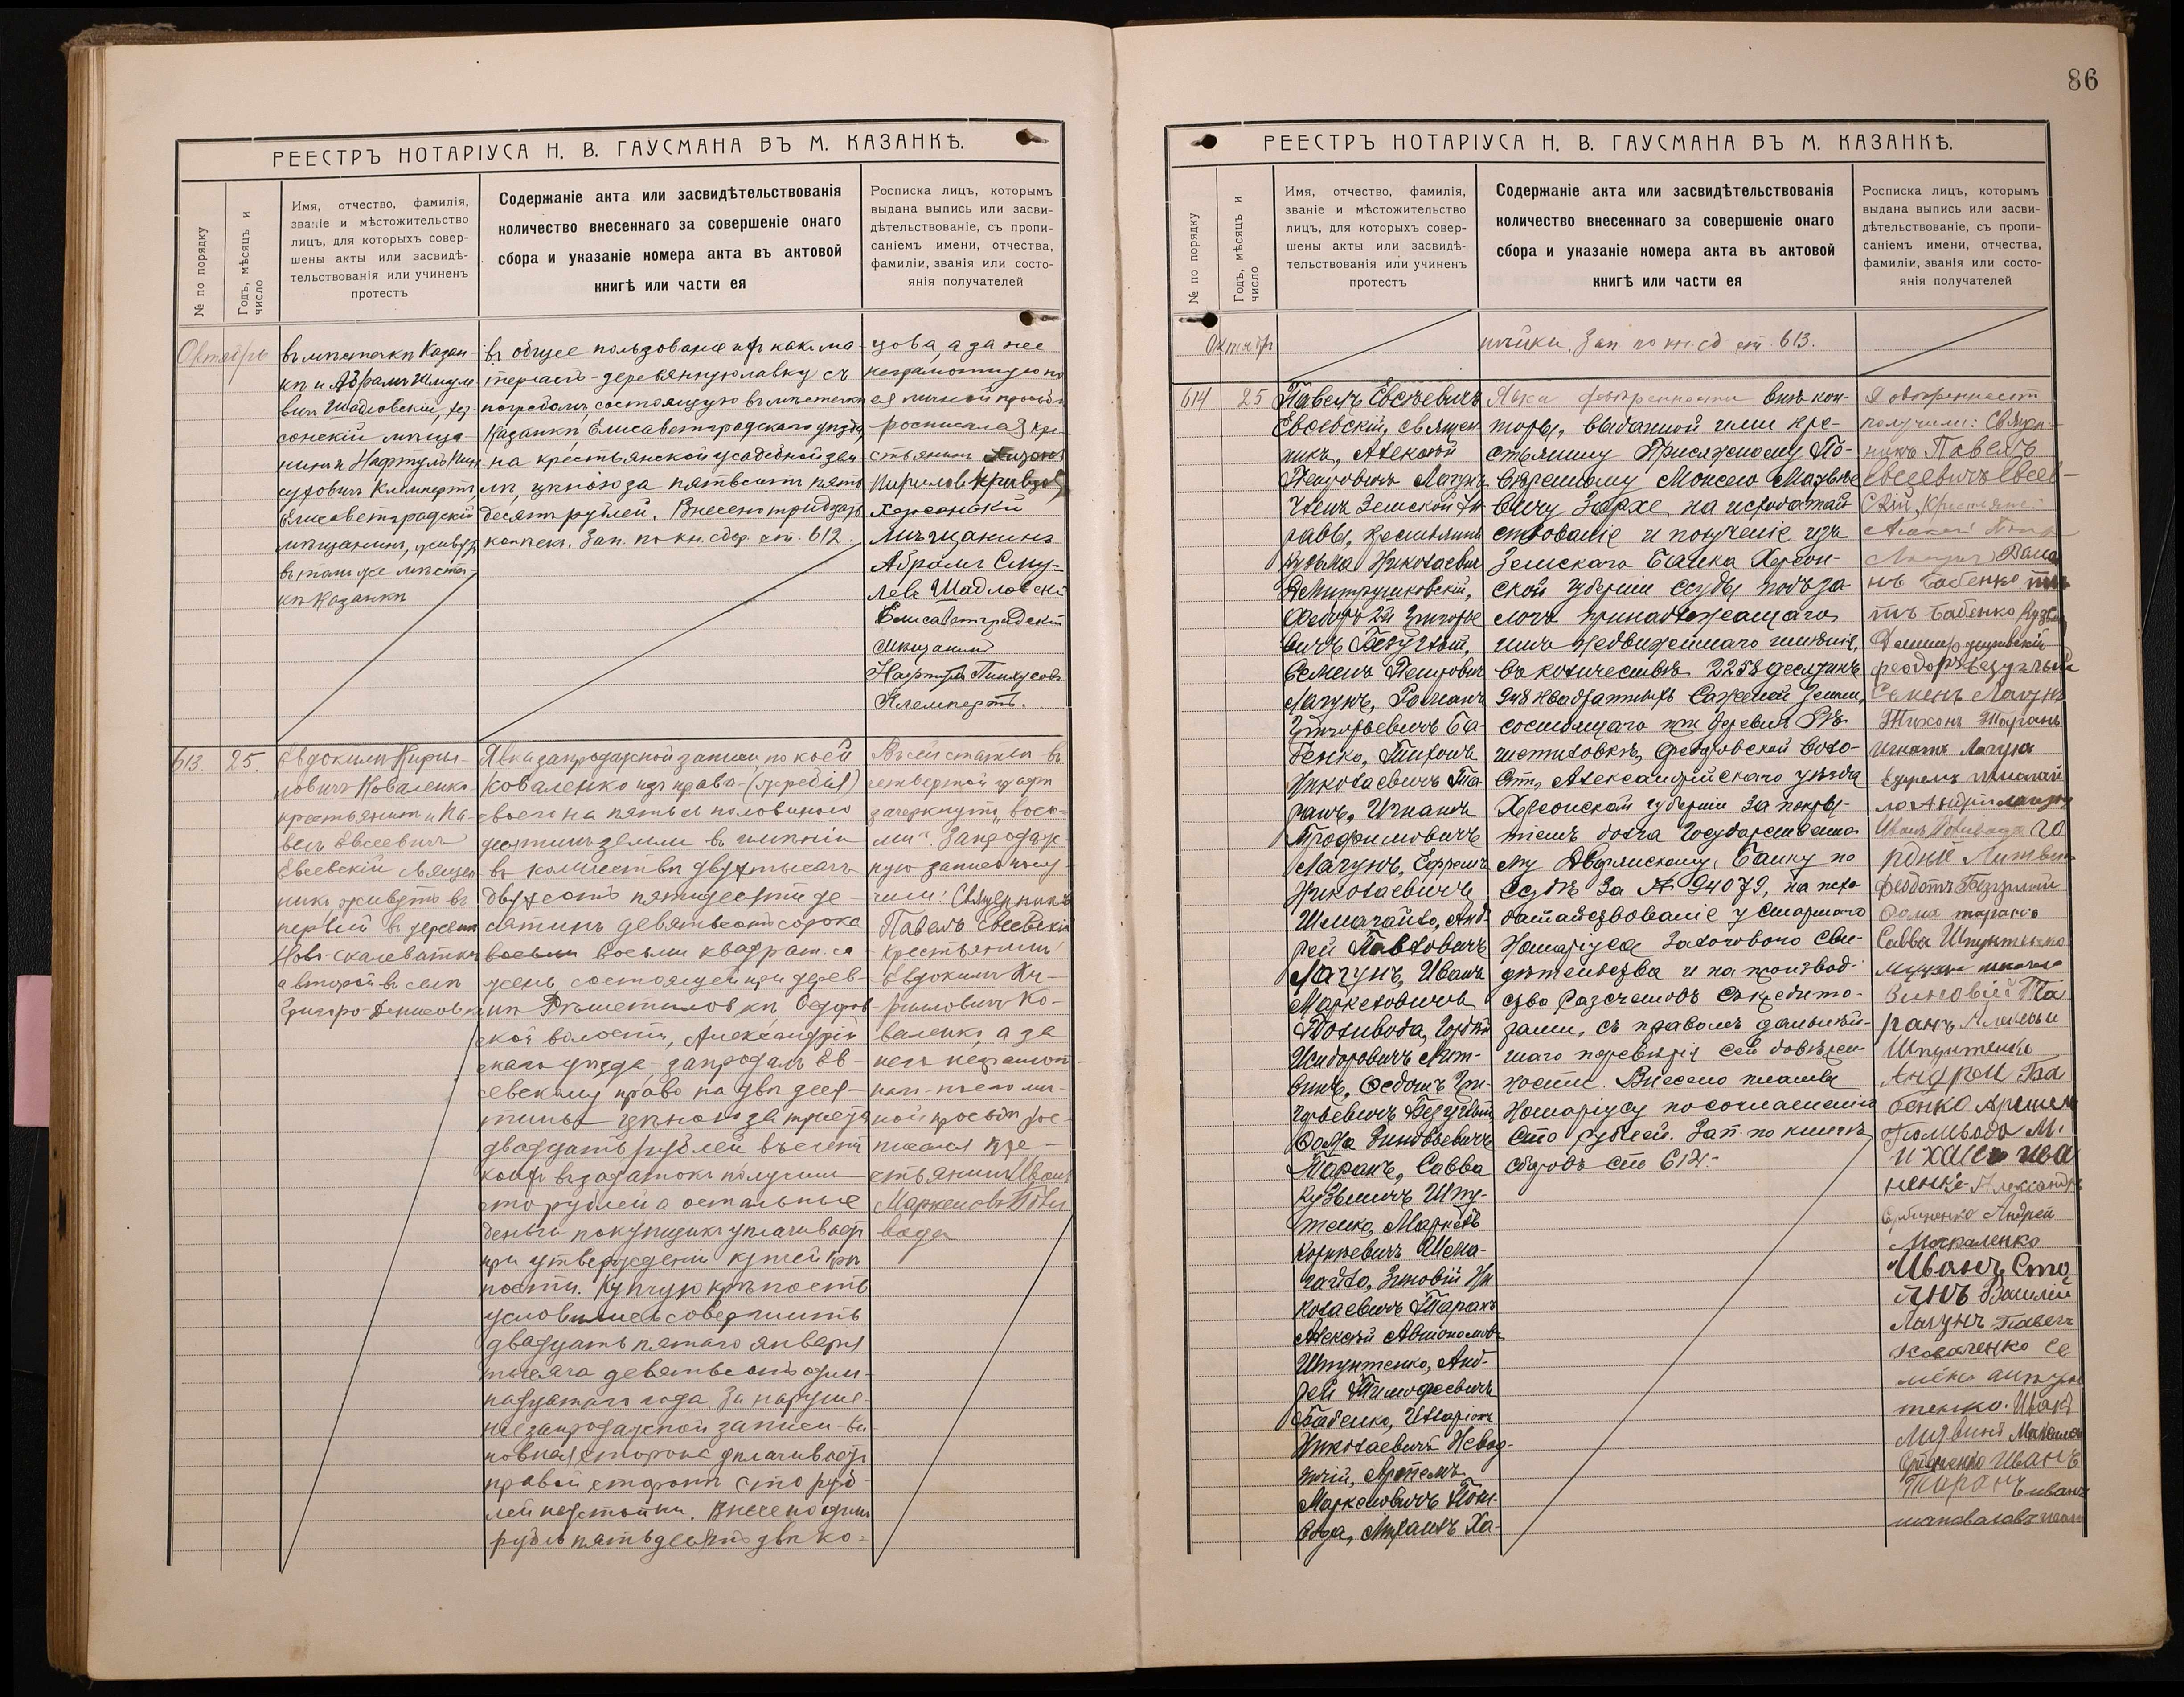 86
РЕЕСТРЪ НОТАРІУСА Н. В. ГАУСМАНА ВЪ М. КАЗАНКѢ.
№ по порядку
Годъ, мѣсяцъ и число
Имя, отчество, фамилія,
званіе и мѣстожительство
лицъ, для которыхъ совер-
шены акты или засвидѣ-
тельствованія или учиненъ
протестъ
Содержаніе акта или засвидѣтельствованія
количество внесеннаго за совершеніе онаго
сбора и указаніе номера акта въ актовой
книгѣ или части ея
Росписка лицъ, которымъ
выдана выпись или засви-
дѣтельствованіе, съ пропи-
саніемъ имени, отчества,
фамиліи, званія или состо-
янія получателей
Октябрь
въ мѣстечкѣ Казан-
кѣ и Абрамъ Шмуле-
вичъ Шадловскій, хер-
сонскій мѣща-
нинъ и Нафтулъ Пин-
хусовичъ Клемпертъ
Елисаветградскій
мѣщанинъ, живутъ
въ томъ же мѣстеч-
кѣ Казанкѣ
въ общее пользованіе ихъ какъ ма-
теріалъ - деревянную лавку съ
погребомъ, состоящую въ мѣстечкѣ
Казанкѣ, Елисаветградскаго уѣзда,
на крестьянской усадебной зем-
лѣ, цѣною за пятьсотъ пять
десятъ рублей. Внесено тридцать
копѣек. Зап. по кн. сбор. ст. 612.
цова, а за нее
неграмотную по
ея личной просьбѣ
росписался кре-
стьянинъ
Кириловъ Кривцовъ
Херсонскій
Мѣщанинъ
Абрамъ Сму-
левъ Шадловскій
Елисаветградскій
мѣщанинъ
Нафтулъ Пинхусовъ
Клемпертъ.
613.
25.
Евдокимъ Кири-
ловичъ Коваленко
крестьянинъ и Па-
велъ Евсеевичъ
Евсевскій священ-
никъ живутъ въ
первый въ деревнѣ
Ново-Скалеваткѣ
а второй въ селѣ
Григоро-Денисовкѣ
Явка запродажной записи по коей
Коваленко изъ права - (жребія)
своего на пять съ половиною
десятинъ земли въ имѣніи
въ количествѣ двухъ тысячъ
двухсотъ пятидесяти де-
сятинъ девятьсотъ сорока
восьми восьми квадрат. са
жень состоящей при дерев-
нѣ Рѣшетиловкѣ, Федоров-
ской волости, Александрій
скаго уѣзда запродалъ Ев-
севскому право на двѣ деся-
тины цѣною за триста
двадцать рублей въ счетъ
коихъ въ задатокъ получилъ
сто рублей а остальные
деньги покупщикъ уплачиваетъ
при утвержденіи купчей крѣ
пости. Купчую крѣпость
условились совершить
двадцать пятаго января
тысяча девятьсотъ оди-
надцатаго года. За наруше-
ніе запродажной записи - ви
новная сторона уплачиваетъ
правой сторонѣ сто руб-
лей неустойки. Внесено одинъ
рубль пятьдесятъ двѣ ко-
Въ сей статьи въ
четвертой графѣ
зачеркнуто „вось-
ми". Запродаж-
ную запись полу-
чили: Священникъ
Павелъ Евсевскій
крестьянинъ
Евдокимъ Ки-
риловичъ Ко-
валенко, а за
него неграмот-
наго по его лич-
ной просьбѣ рос-
писался кре-
стьянинъ Иванъ
Маркеловъ Поли
вода
РЕЕСТРЪ НОТАРІУСА Н. В. ГАУСМАНА ВЪ М. КАЗАНКѢ.
№ по порядку
Годъ, мѣсяцъ и число
Имя, отчество, фамилія,
званіе и мѣстожительство
лицъ, для которыхъ совер-
шены акты или засвидѣ-
тельствованія или учиненъ
протестъ
Содержаніе акта или засвидѣтельствованія
количество внесеннаго за совершеніе онаго
сбора и указаніе номера акта въ актовой
книгѣ или части ея
Росписка лицъ, которымъ
выдана выпись или засви-
дѣтельствованіе, съ пропи-
саніемъ имени, отчества,
фамиліи, званія или состо-
янія получателей
Октябр
пѣйки. Зап. по кн. сб. ст. 613.
614
25
Павелъ Евсѣевичъ
Евсевскій, священ
никъ, Алексѣй
Петровичъ Лагунъ
Членъ Земской Уп
равы, крестьяне
Кузьма Николаевич
Демитрушковскій,
Федоръ 2й Григорье
вичъ Безуглый,
Семенъ Петрович
Лагунъ, Романъ
Григорьевичъ Ба-
бенко, Тихонъ
Николаевичъ Та-
ранъ, Игнатъ
Трофимовичъ
Лагунъ, Ефремъ
Николаевичъ
Шмагайло, Анд-
рей Павловичъ
Лагунъ, Иванъ
Маркеловичъ
Поливода, Гордѣй
Исидоровичъ Лит-
винъ, Федотъ Гри-
горьевичъ Безуглый
Фома Зиновьевичъ
Таранъ, Савва
Кузьмичъ Шпу-
тенко, Маркелъ
Корнѣевичъ Шма-
гайло, Зиновій Ни
колаевичъ Таранъ
Алексѣй Автономов
Шпунтенко, Анд-
рей Тимофеевичъ
Бабенко, Иларіонъ
Николаевичъ Невод-
ничій, Артемъ
Маркеловичъ Поли-
вода, Михаилъ Ха-
Явка довѣренности внѣ кон-
торы, выданной ими кре-
стьянину Присяжному По-
вѣренному Моисею Матвѣе
вичу Зархе на исходатай
ствованіе и полученіе изъ
Земскаго Банка Херсон-
ской губерніи ссуды подъ за
логъ принадлежащаго
имъ недвижимаго имѣнія,
въ количествѣ 2258 десятинъ
948 квадратныхъ саженей земли,
состоящаго при деревнѣ Рѣ-
шетиловкѣ, Федоровской воло-
сти, Александрійскаго уѣзда
Херсонской губерніи за покры-
тіемъ долга Государственно
му Дворянскому Банку по
ссудѣ за № 94079, на исхо-
датайствованіе у Старшаго
Нотаріуса залогового сви-
дѣтельства и на производ-
ство разсчетовъ съ кредито-
рами, съ правомъ дальнѣй-
шаго перевѣрія сей довѣрен-
ности. Внесено платы
Нотаріусу по соглашенію
сто рублей. Зап. по книгѣ
сборовъ ст. 614.-
Я довѣренност
получили: Священ
никъ Павелъ
Евсеевичъ Евсев-
скій, Крестьяне:
Романъ Бабенко
Бабенко Кузьма
Демитрушковскій
Феодоръ Безуглый
Семенъ Лагунъ
Тихонъ Таранъ
Игнатъ Лагунъ
Ефремъ Шмагай
ло Андрей Лагунъ
Иванъ Поливода Го
рдѣй Литвин
Феодотъ Безуглый
Фома Таранъ
Савва Шпунтенко
Зиновій Та
ранъ Алексѣй
Шпунтенко
Андрей Ба
бенко Артемъ
Поливода М
ихаилъ
Александръ
Андрей
Москаленко
Иванъ Сто
янъ Василій
Лагунъ Павелъ
Коваленко Се
менъ
тенко. Иванъ
Иванъ
Таранъ Иванъ